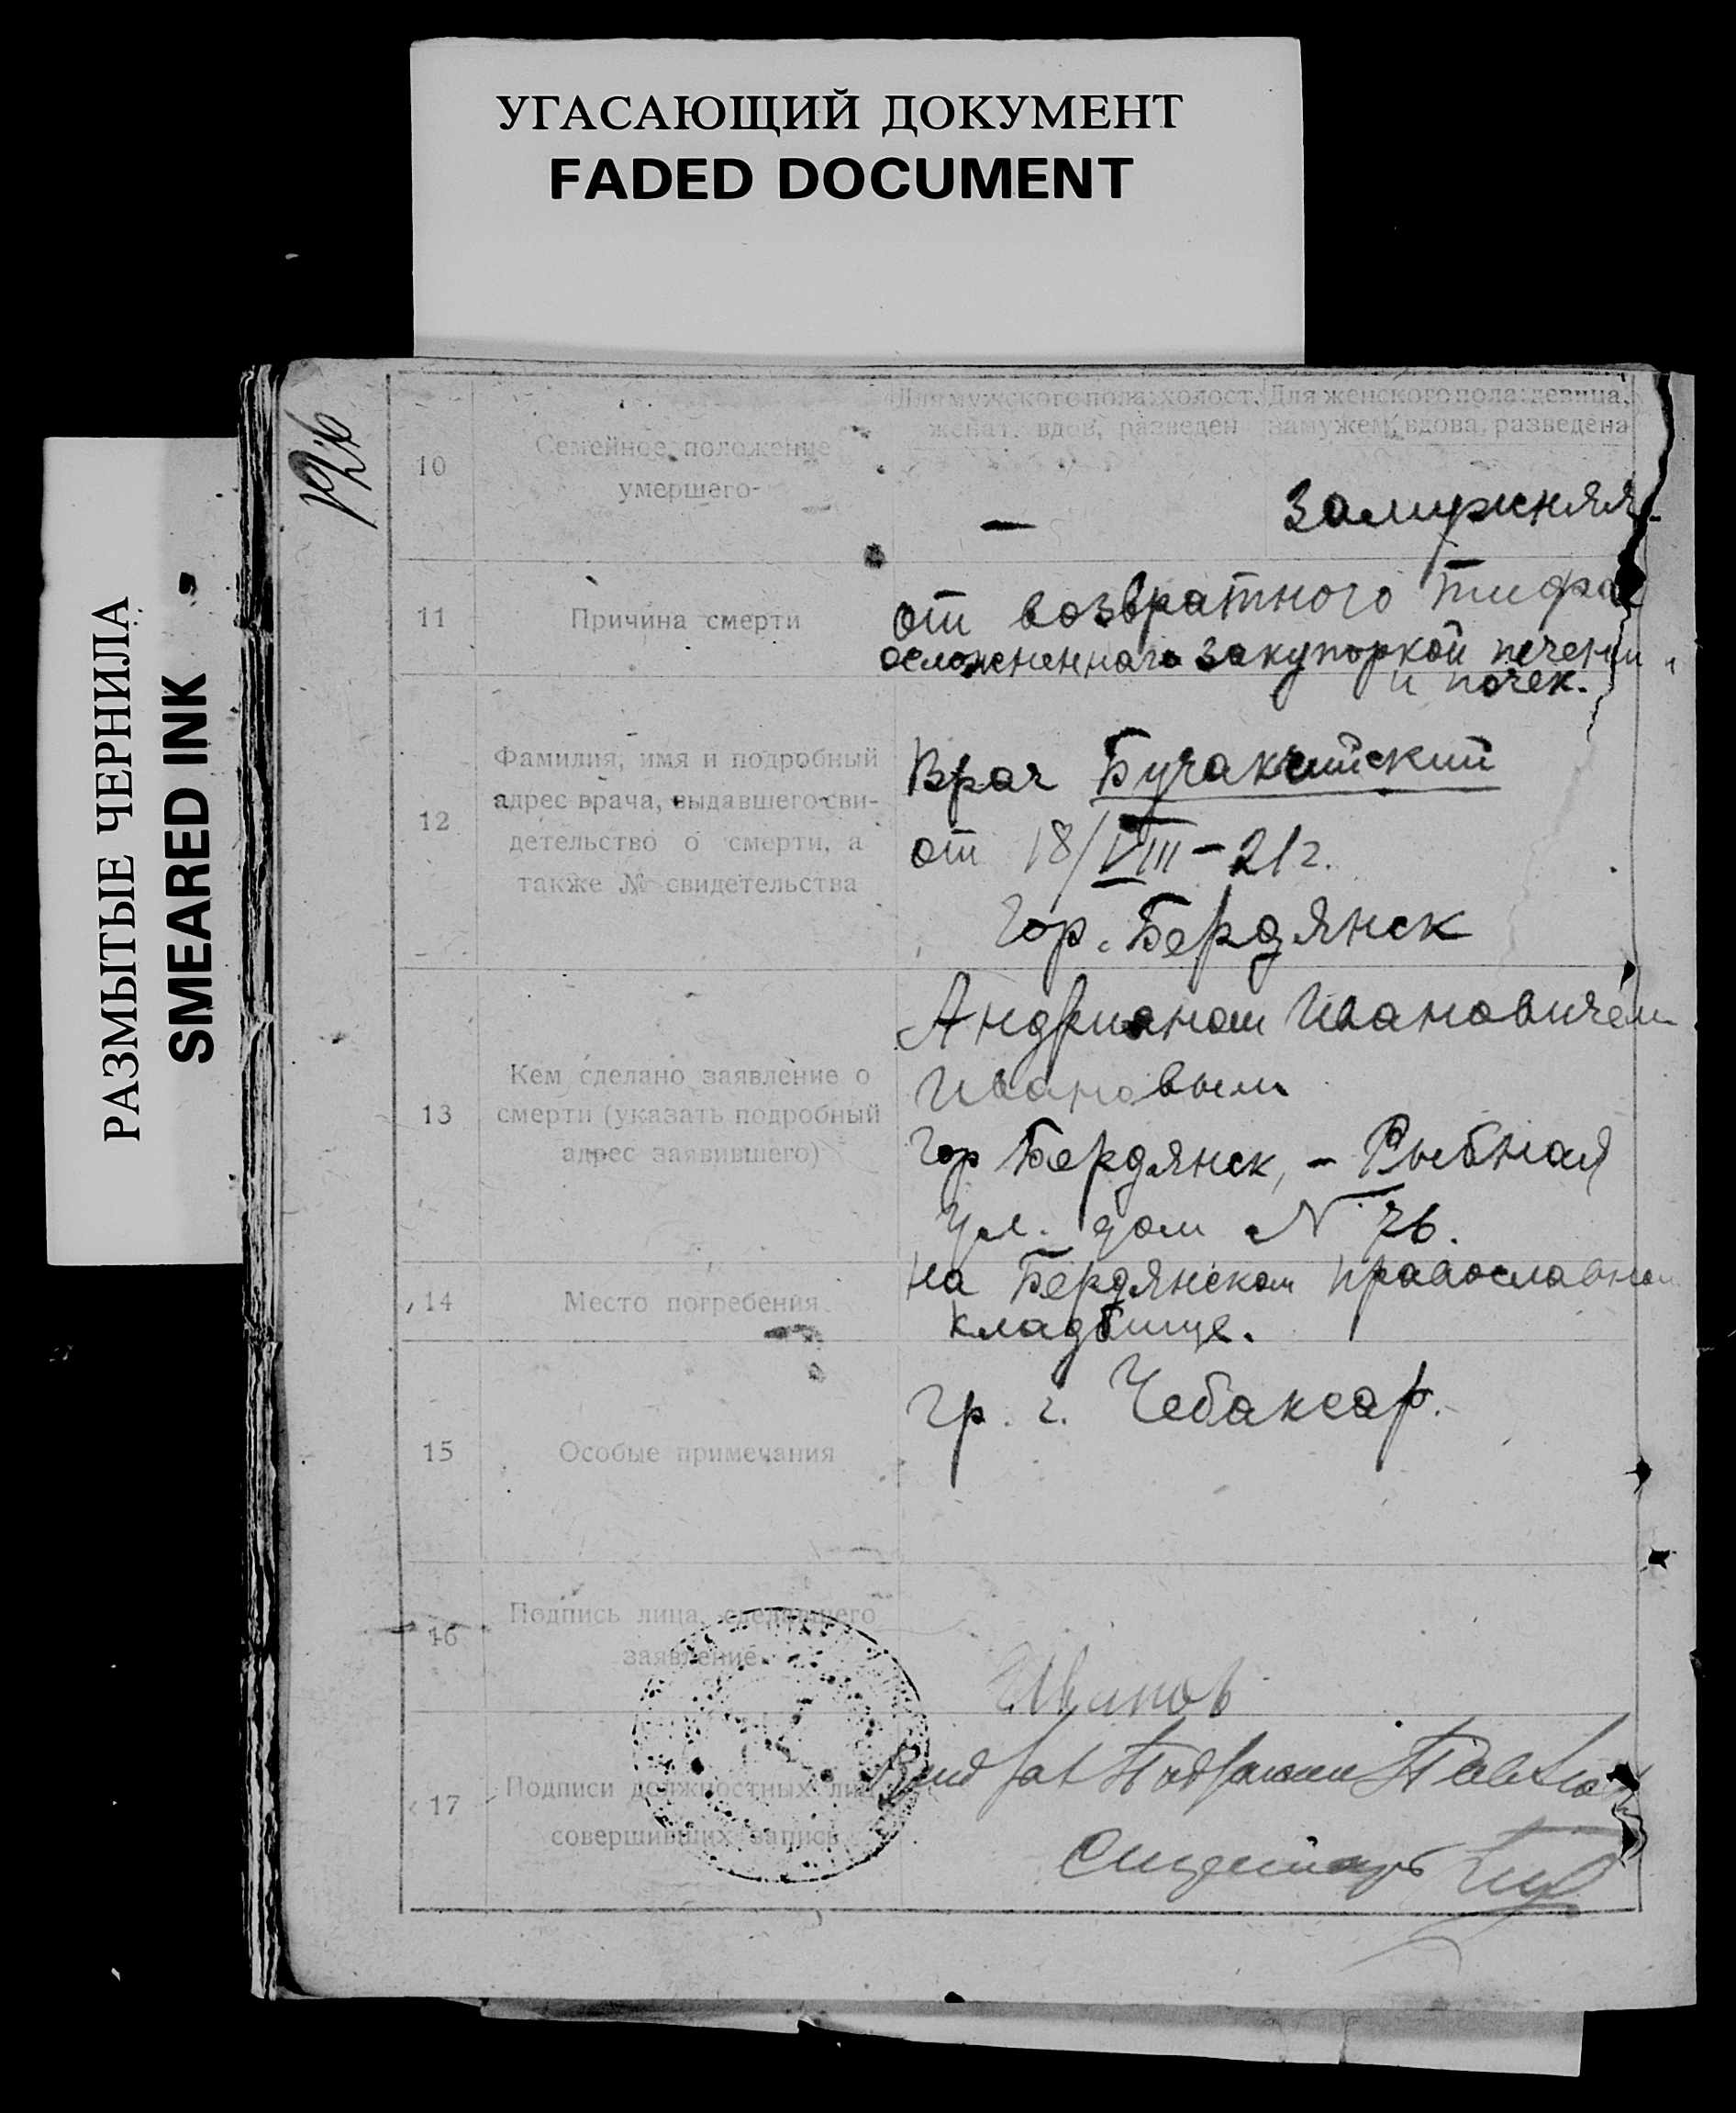 УГАСАЮЩИЙ ДОКУМЕНТ
FADED DOCUMENT
РАЗМЫТЫЕ ЧЕРНИЛА
SMEARED INK
10
Семейное положение
умершего-
Для мужского пола: холост,
женат, вдов, разведен
Для женского пола: девица,
замужем, вдова, разведена
—
Замужняя.
11
Причина смерти
от возвратного тифа
осложненнаго закупоркой печени
и почек.
12
Фамилия, имя и подробный
адрес врача, выдавшего сви-
детельство о смерти, а
также № свидетельства
Врач
от 18/VIII-21г.
Гор. Бердянск
13
Кем сделано заявление о
смерти (указать подробный
адрес заявившего)
Андрианом Ивановичем
Ивановым
Гор Бердянск, - Рыбная
ул. дом N 76.
14
Место погребения
На Бердянском православном
кладбище.
15
Особые примечания
гр. г. Чебаксар.
16
Подпись лица, сделавшего
заявление
Иванов
17
Подписи должностных лиц,
совершивших запись